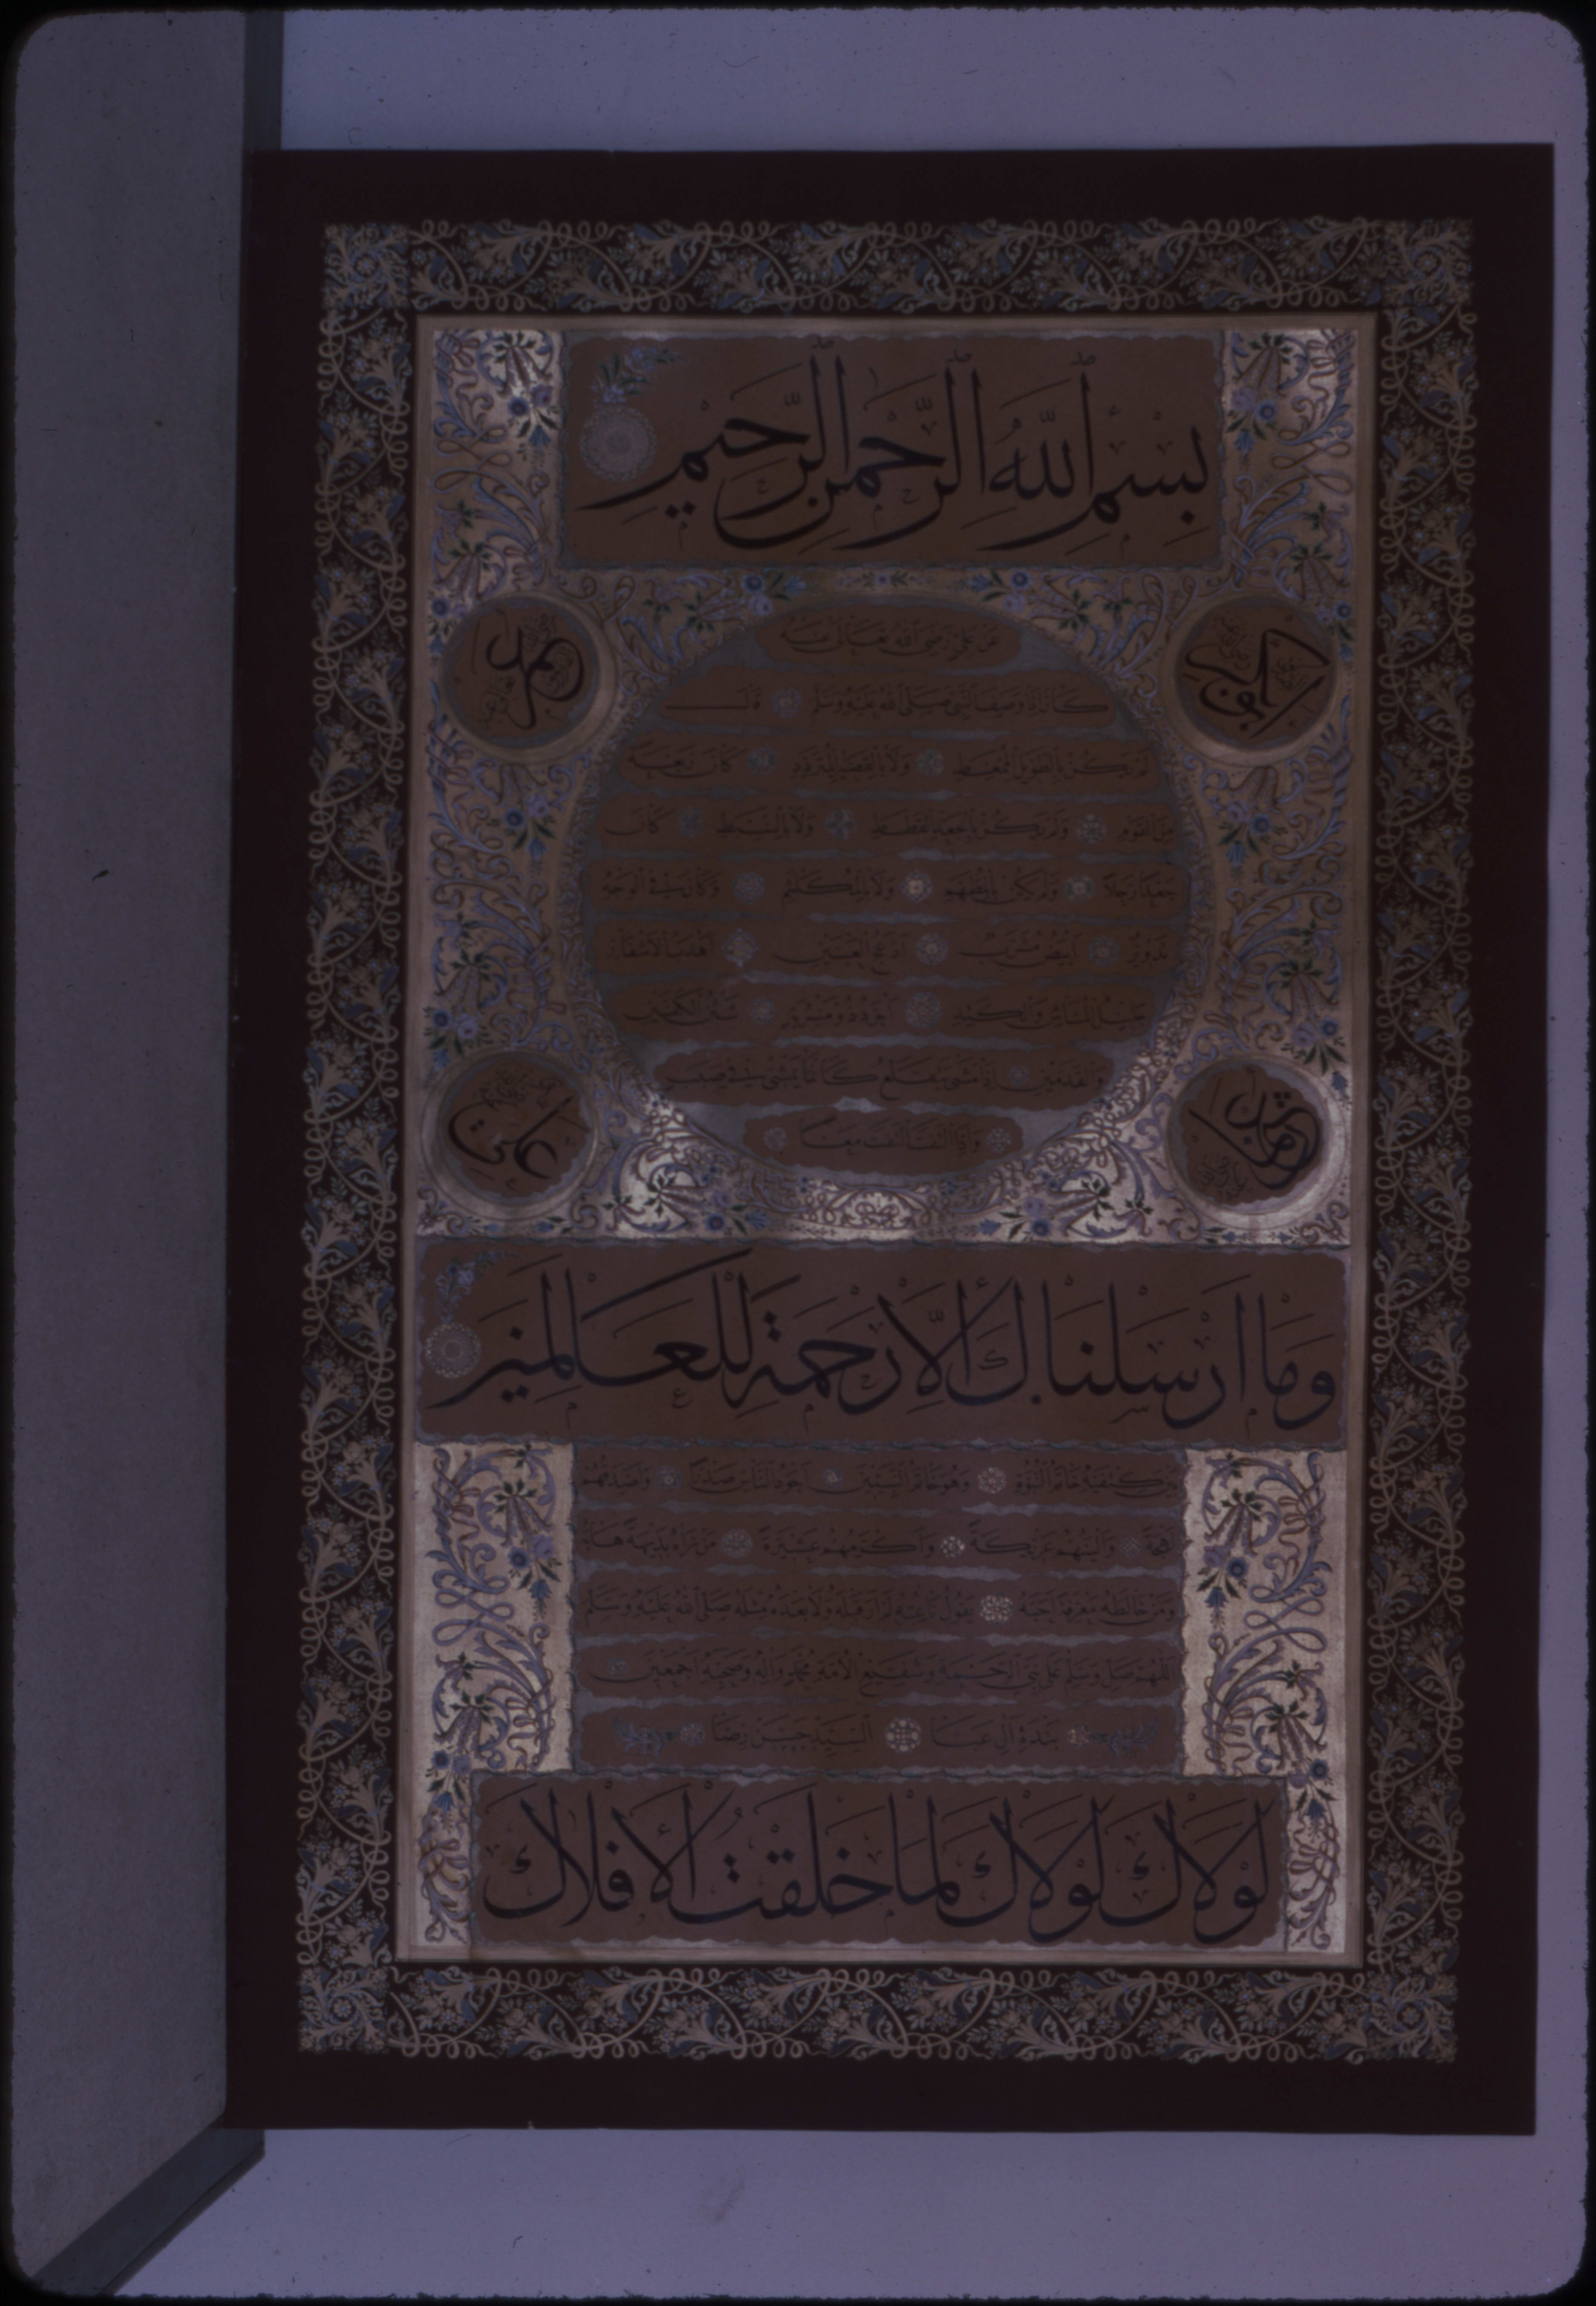 بسم الله الرحمن الرحيم
عن علي رضي الله تعالى عنه
كان إذا وصف النبي صلى الله عليه وسلم قال
لم يكن بالطويل الممغط ولا بالقصير المتردد كان ربعة
من القوم ولم يكن بالجعد القطط ولا بالسبط كان
جعدا رجلا ولم يكن بالمطهم ولا بالمكلثم وكان في الوجه
تدوير أبيض مشرب أدعج العينين أهدب الأشفار
جليل المشاش والكتد أجرد ذو مسربة شثن الكفين
والقدمين إذا مشى يتقلع كأنما يمشي في صبب
وإذا التفت التفت معا
أبو بكر
عمر
عثمان
علي
وما أرسلناك إلا رحمة للعالمين
بين كتفيه خاتم النبوة وهو خاتم النبيين أجود الناس صدرا وأصدقهم
لهجة وألينهم عريكة وأكرمهم عشيرة من رآه بديهة هابه
ومن خالطه معرفة أحبه يقول ناعته لم أر قبله ولا بعده مثله صلى الله عليه وسلم
اللهم صل وسلم على نبي الرحمة وشفيع الأمة محمد وآله وصحبه أجمعين
بنده آل عبا السيد حسن رضا
لولاك لولاك لما خلقت الأفلاك